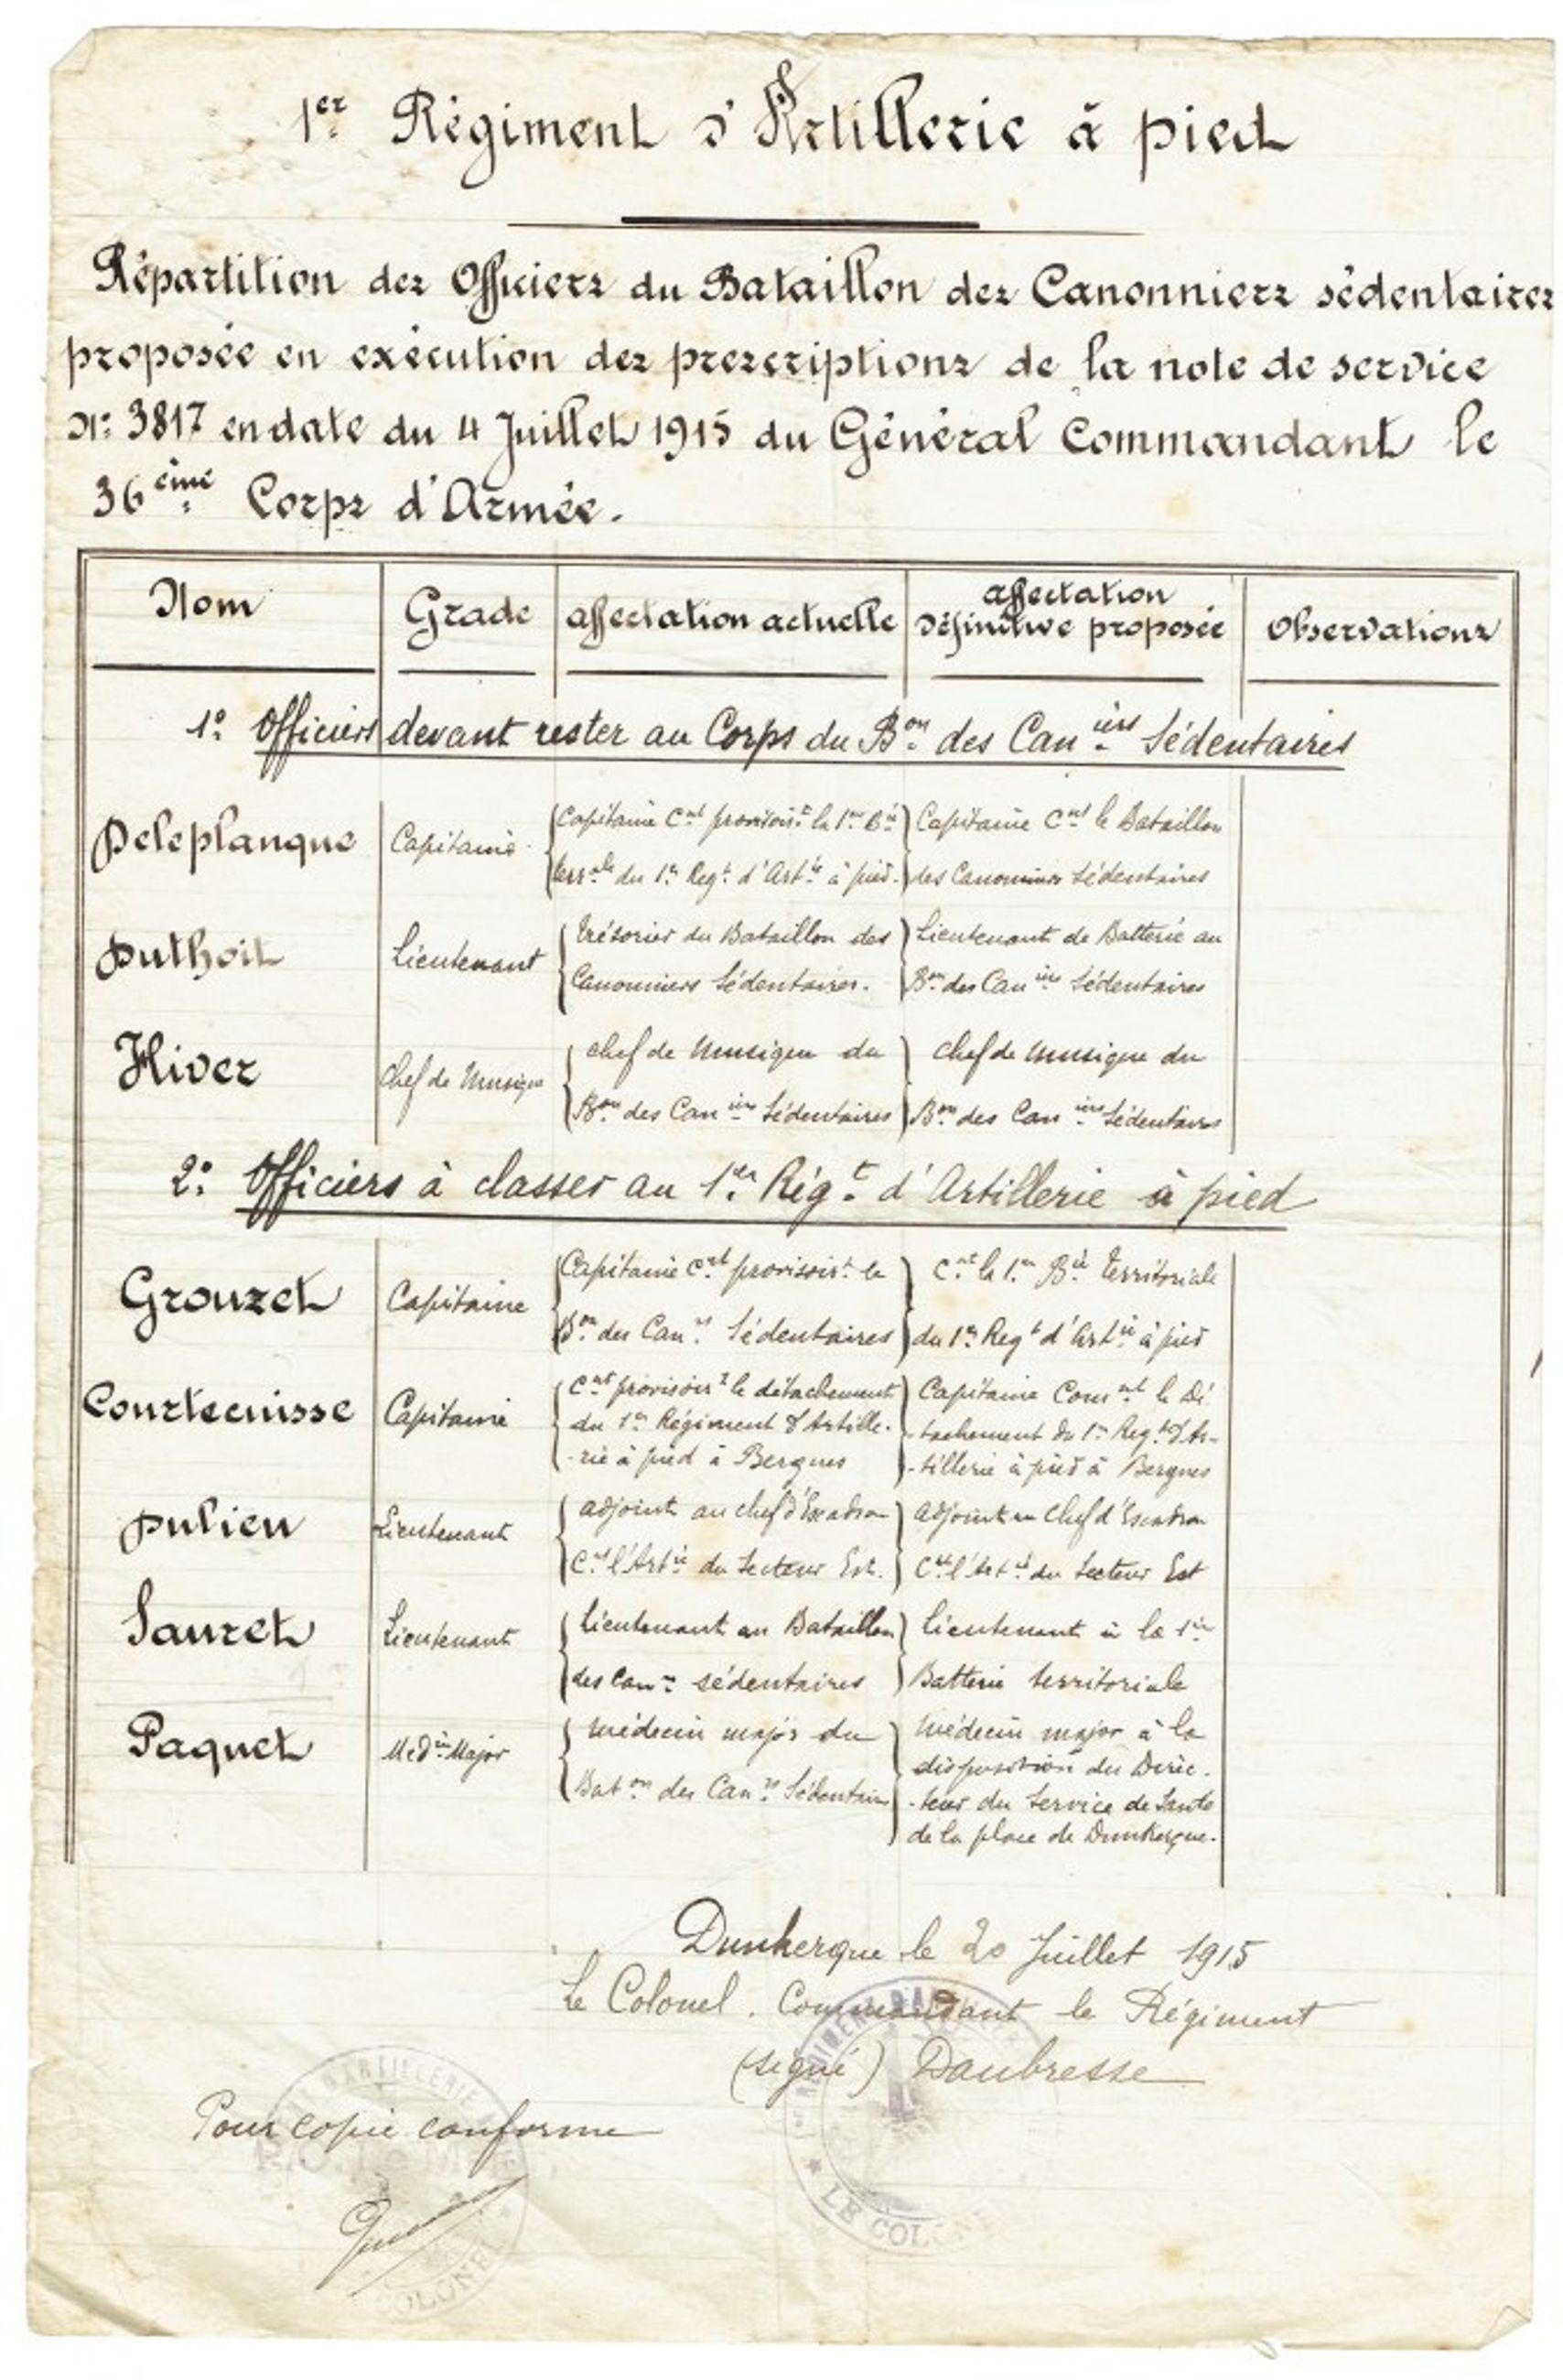 1er Régiment d'Artillerie à pied
Répartition des Officiers du Bataillon des Canonniers sédentaires
proposée en exécution des prescriptions de la note de service
N° 3817 en date du 4 Juillet 1915 du Général Commandant le
36ème Corps d'Armée.
Nom
Grade
affectation actuelle
affectation
définitive proposée
Observations
1° Officiers devant rester au Corps du Bon des Caniers Sédentaires
Deleplanque
Capitaine
Capitaine Cnt provisoirt la 1re Bie
terrale du 1er Regt d'Artie à pied.
Capitaine Cnt le Bataillon
des Canonniers Sédentaires
Duthoit
Lieutenant
Trésorier du Bataillon des
Canonniers Sédentaires.
Lieutenant de Batterie au
Bon des Caniers Sédentaires
Hiver
Chef de Musique
Chef de Musique du
Bon des Caniers Sédentaires
Chef de Musique du
Bon des Caniers Sédentaires
2° Officiers à classer au 1er Régt d'Artillerie à pied
Grouzet
Capitaine
Capitaine Cnt provisoirt le
Bon des Canrs Sédentaires
Cnt la 1re Bie territoriale
du 1er Regt d'Artie à pied
Courtecuisse
Capitaine
Cnt provisoirt le détachement
du 1er Régiment d'Artille-
-rie à pied à Bergues
Capitaine Comnt le Dé
-tachement du 1er Regt d'Ar-
-tillerie à pied à Bergues
Dulieu
Lieutenant
adjoint au chef d'Escadron
Cnt l'Artie du Secteur Est.
adjoint au Chef d'Escadron
Cnt l'Artie du Secteur Est
Sauret
Lieutenant
Lieutenant au Bataillon
des Canrs sédentaires
Lieutenant à la 1re
Batterie territoriale
Paquet
Medin Major
Médecin major du
Baton des Canrs Sédentaires
Médecin major à la
disposition du Direc-
-teur du Service de Santé
de la place de Dunkerque.
Dunkerque le 20 Juillet 1915
Le Colonel. Commandant le Régiment
(signé) Daubresse
Pour copie conforme
LE COLONEL